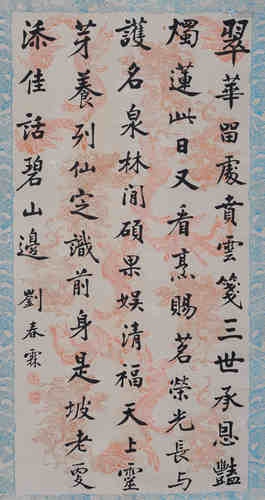 翠華留處賁雲箋三世承恩豔
燭蓮此日又看烹賜茗榮光長与
護名泉林間碩果娛清福天上靈
芽養列仙定識前身是坡老更
添佳話碧山邊 劉春霖